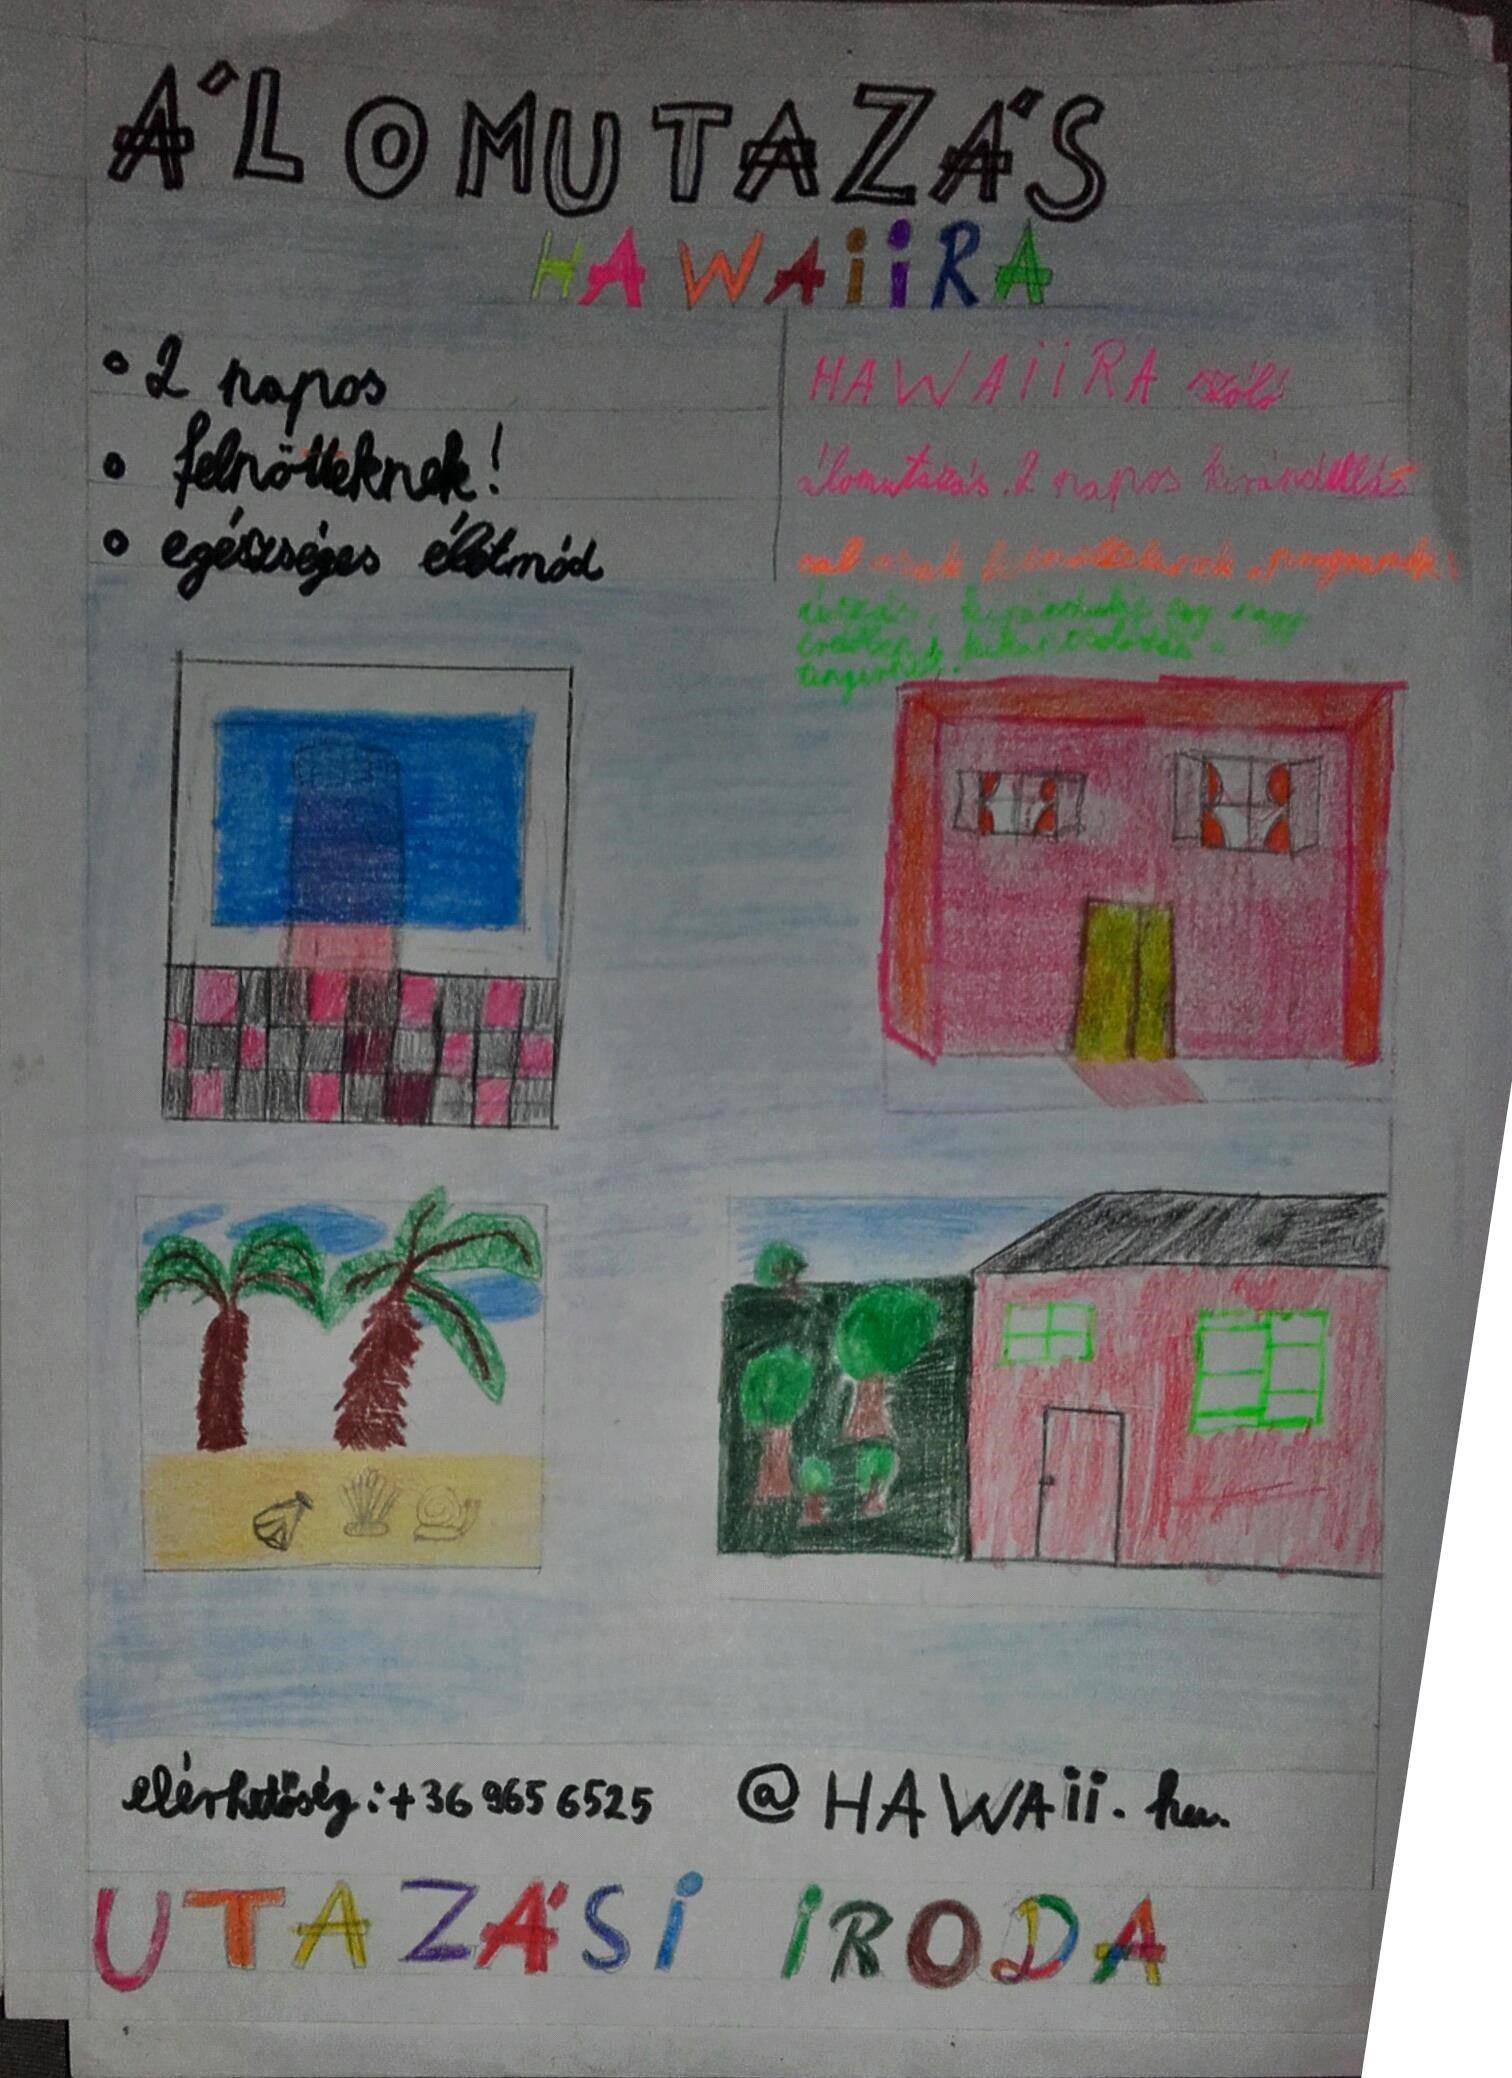 ÁLOMUTAZÁS
HAWAiiRA
• 2 napos
• felnőtteknek!
• egészséges életmód
HAWAiiRA szóló
álomutazás. 2 napos
csak felnőtteknek. programok:
egy nagy
tengerből.
elérhetőség: +36 965 6525
@HAWAii.hu
UTAZÁSi iRODA